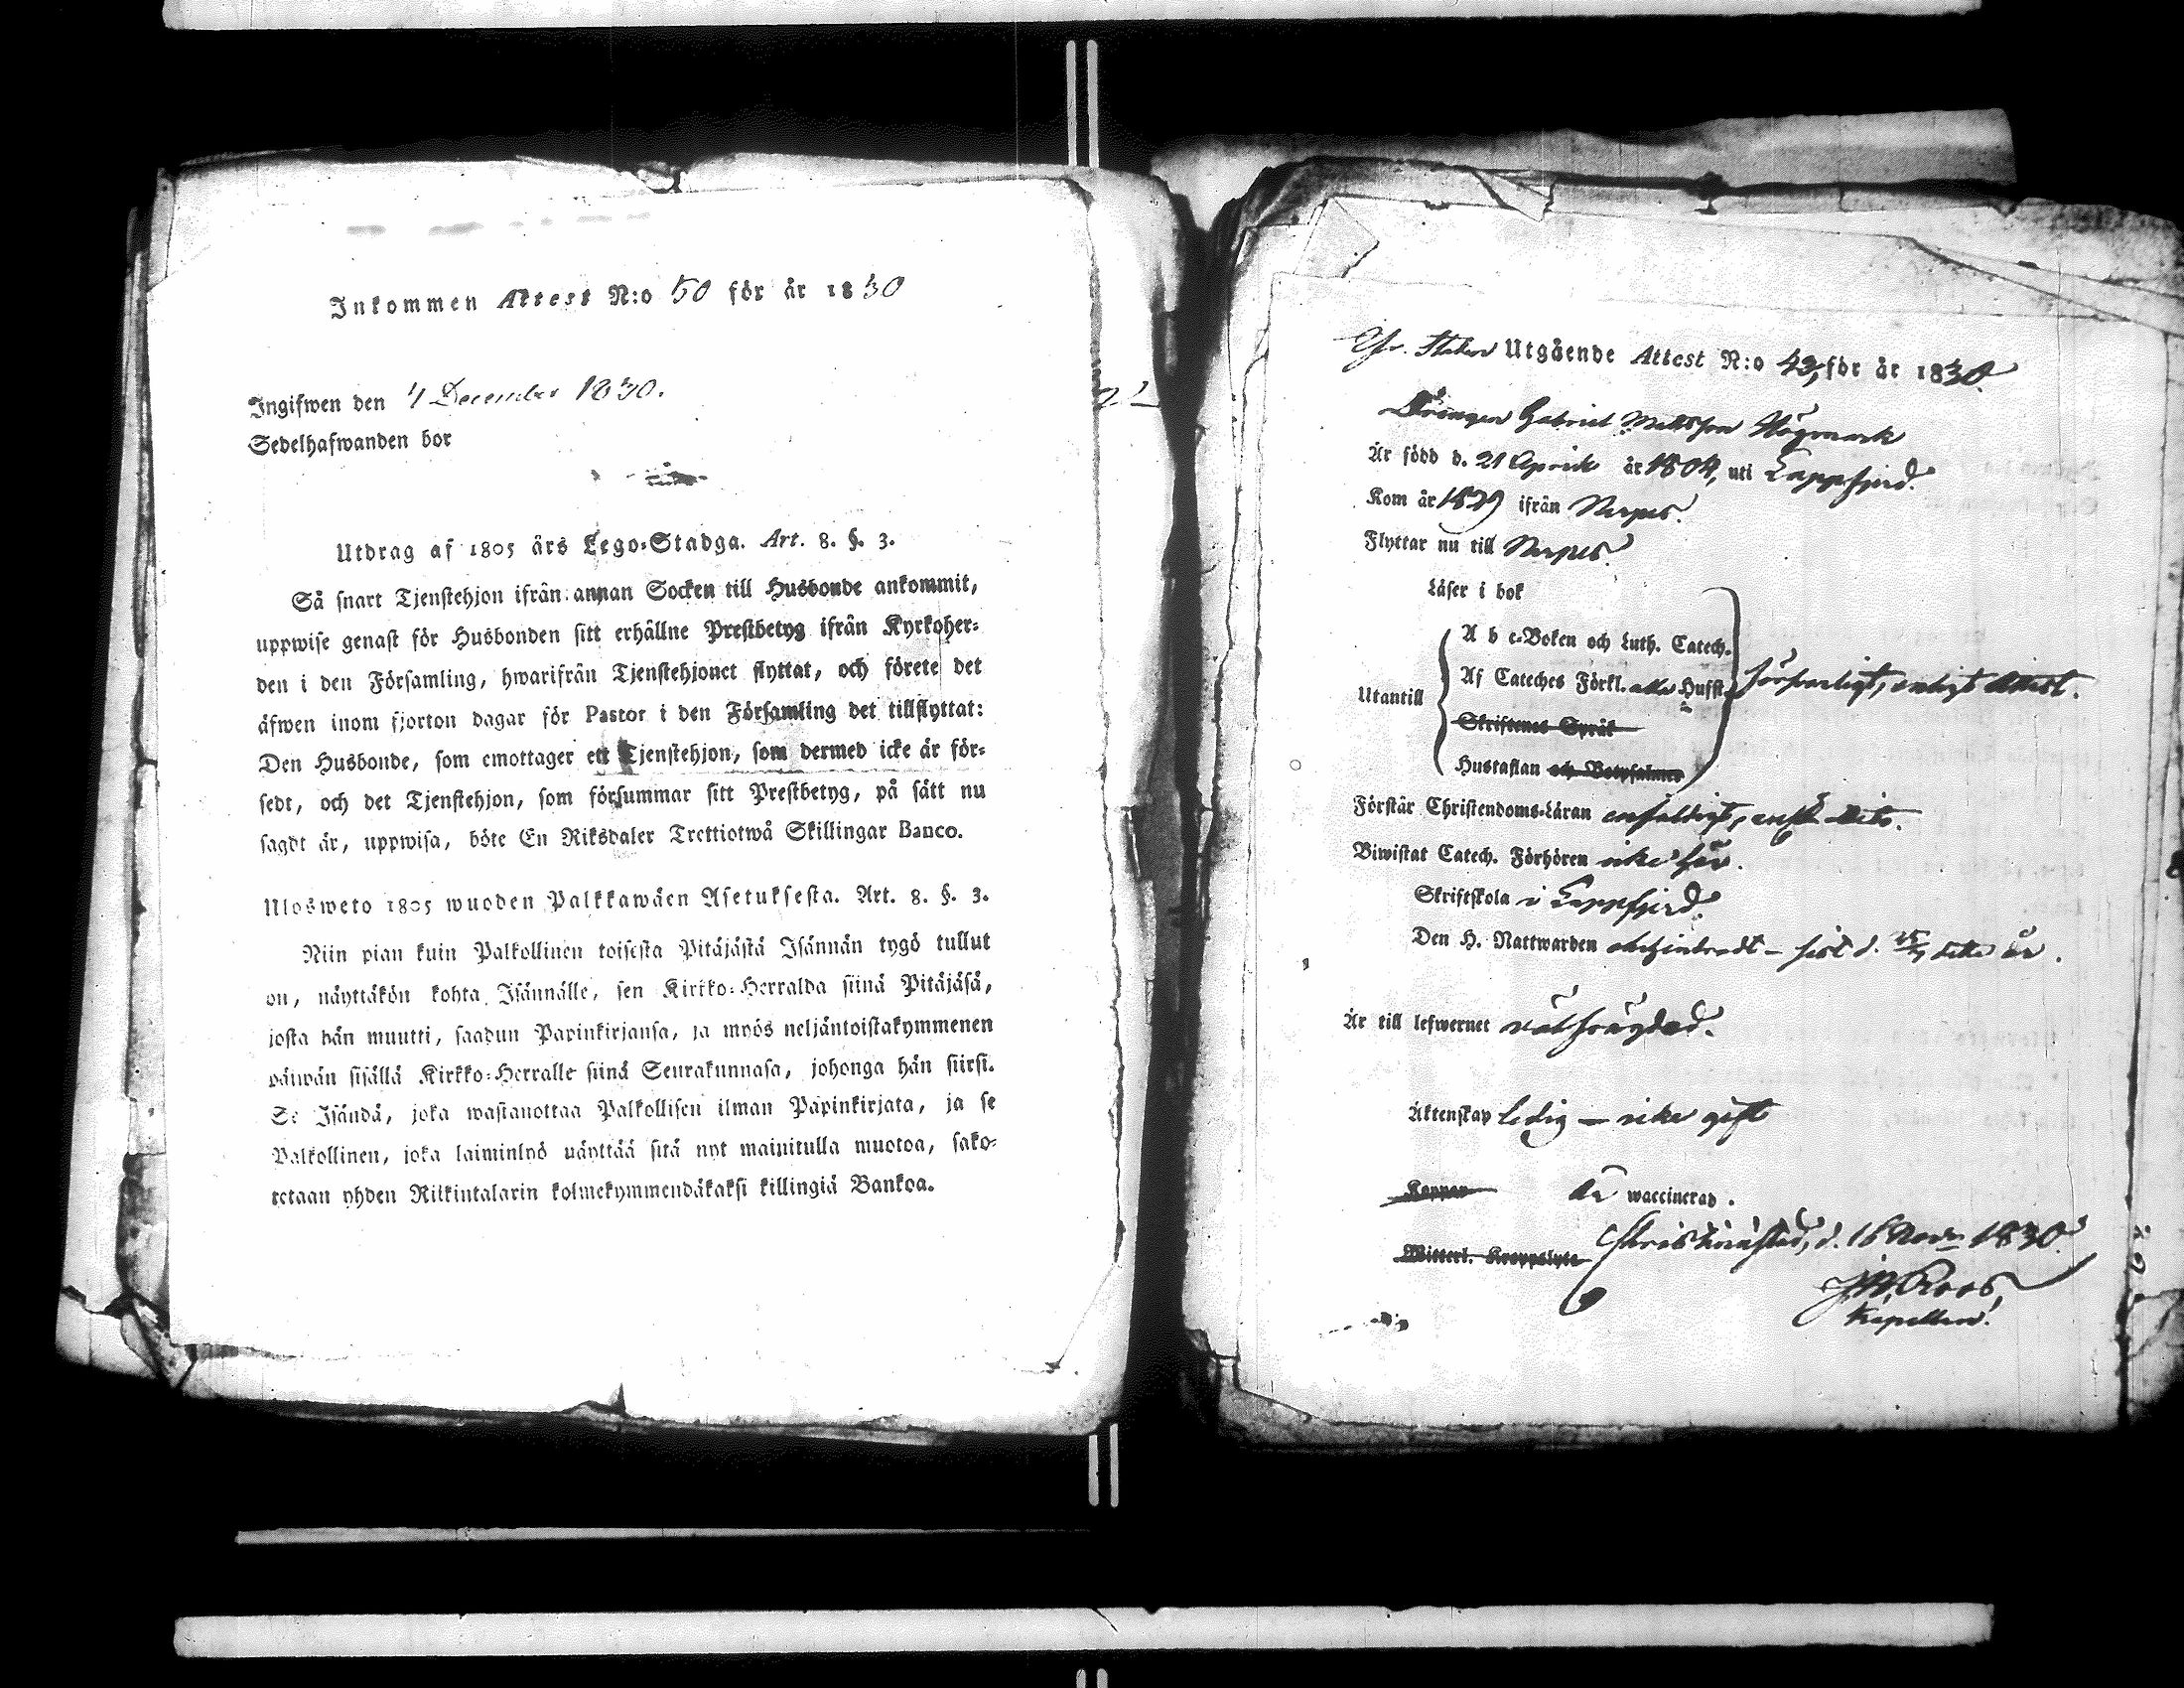 Inkommen Attest N:o 50 för år 1830
Ingifwen den 4 December 1830.
Sedelhafwanden bor
Utdrag af 1805 års Lego=Stadga. Art. 8. §. 3.
Så snart Tjenstehjon ifrån annan Socken till Husbonde ankommit,
uppwise genast för Husbonden sitt erhållne Prestbetyg ifrån Kyrkoher=
den i den Församling, hwarifrån Tjenstehjonet flyttat, och förete det
äfwen inom fjorton dagar för Pastor i den Församling det tillflyttat:
Den Husbonde, som emottager ett Tjenstehjon, som dermed icke är för=
sedt, och det Tjenstehjon, som försummar sitt Prestbetyg, på sätt nu
sagdt är, uppwisa, böte En Riksdaler Trettiotwå Skillingar Banco.
Ulosweto 1805 wuoden Palkkawäen Asetuksesta. Art. 8. §. 3.
Niin pian kuin Palkollinen toisesta Pitäjästä Isännän tygö tullut
on, näyttäkön kohta Isännälle, sen Kirkko=Herralda siinä Pitäjäsä,
josta hän muutti, saadun Papinkirjansa, ja myös neljäntoistakymmenen
päiwän sisällä Kirkko=Herralle siinä Seurakunnasa, johonga hän siirsi.
Se Isändä, joka wastanottaa Palkollisen ilman Papinkirjata, ja se
Palkollinen, joka laiminlyö näyttää sitä nyt mainitulla muotoa, sako=
tetaan yhden Riikintalarin kolmekymmendäkaksi killingiä Bankoa.
Utgående Attest N:o 43, för år 1830.
Drängen Gabriel Mattsson Högmark
Är född d. 21 April år 1804, uti Lappfjerd.
Kom år 1829 ifrån Nerpes.
Flyttar nu till Nerpes.
Läser i bok
Utantill
A b c=Boken och Luth. Catech.
Af Cateches Förkl. alla Hufst.
försvarligt, enligt Attest.
Skriftenes Språk
Hustaflan och Botpsalmer
Förstår Christendoms=Läran enfaldigt, enligt dito.
Biwistat Catech. Förhören icke här.
Skriftskola i Lappfjerd.
Den H. Nattwarden oförhindradt - sist d. detta år.
Är till lefwernet wälfrägdad.
Äktenskap ledig - icke gift
Koppor Är waccinerad.
Witterl. Kroppslyte Christinæstad, d. 16 Nov. 1830.
J.M. Roos,
Kapellan.